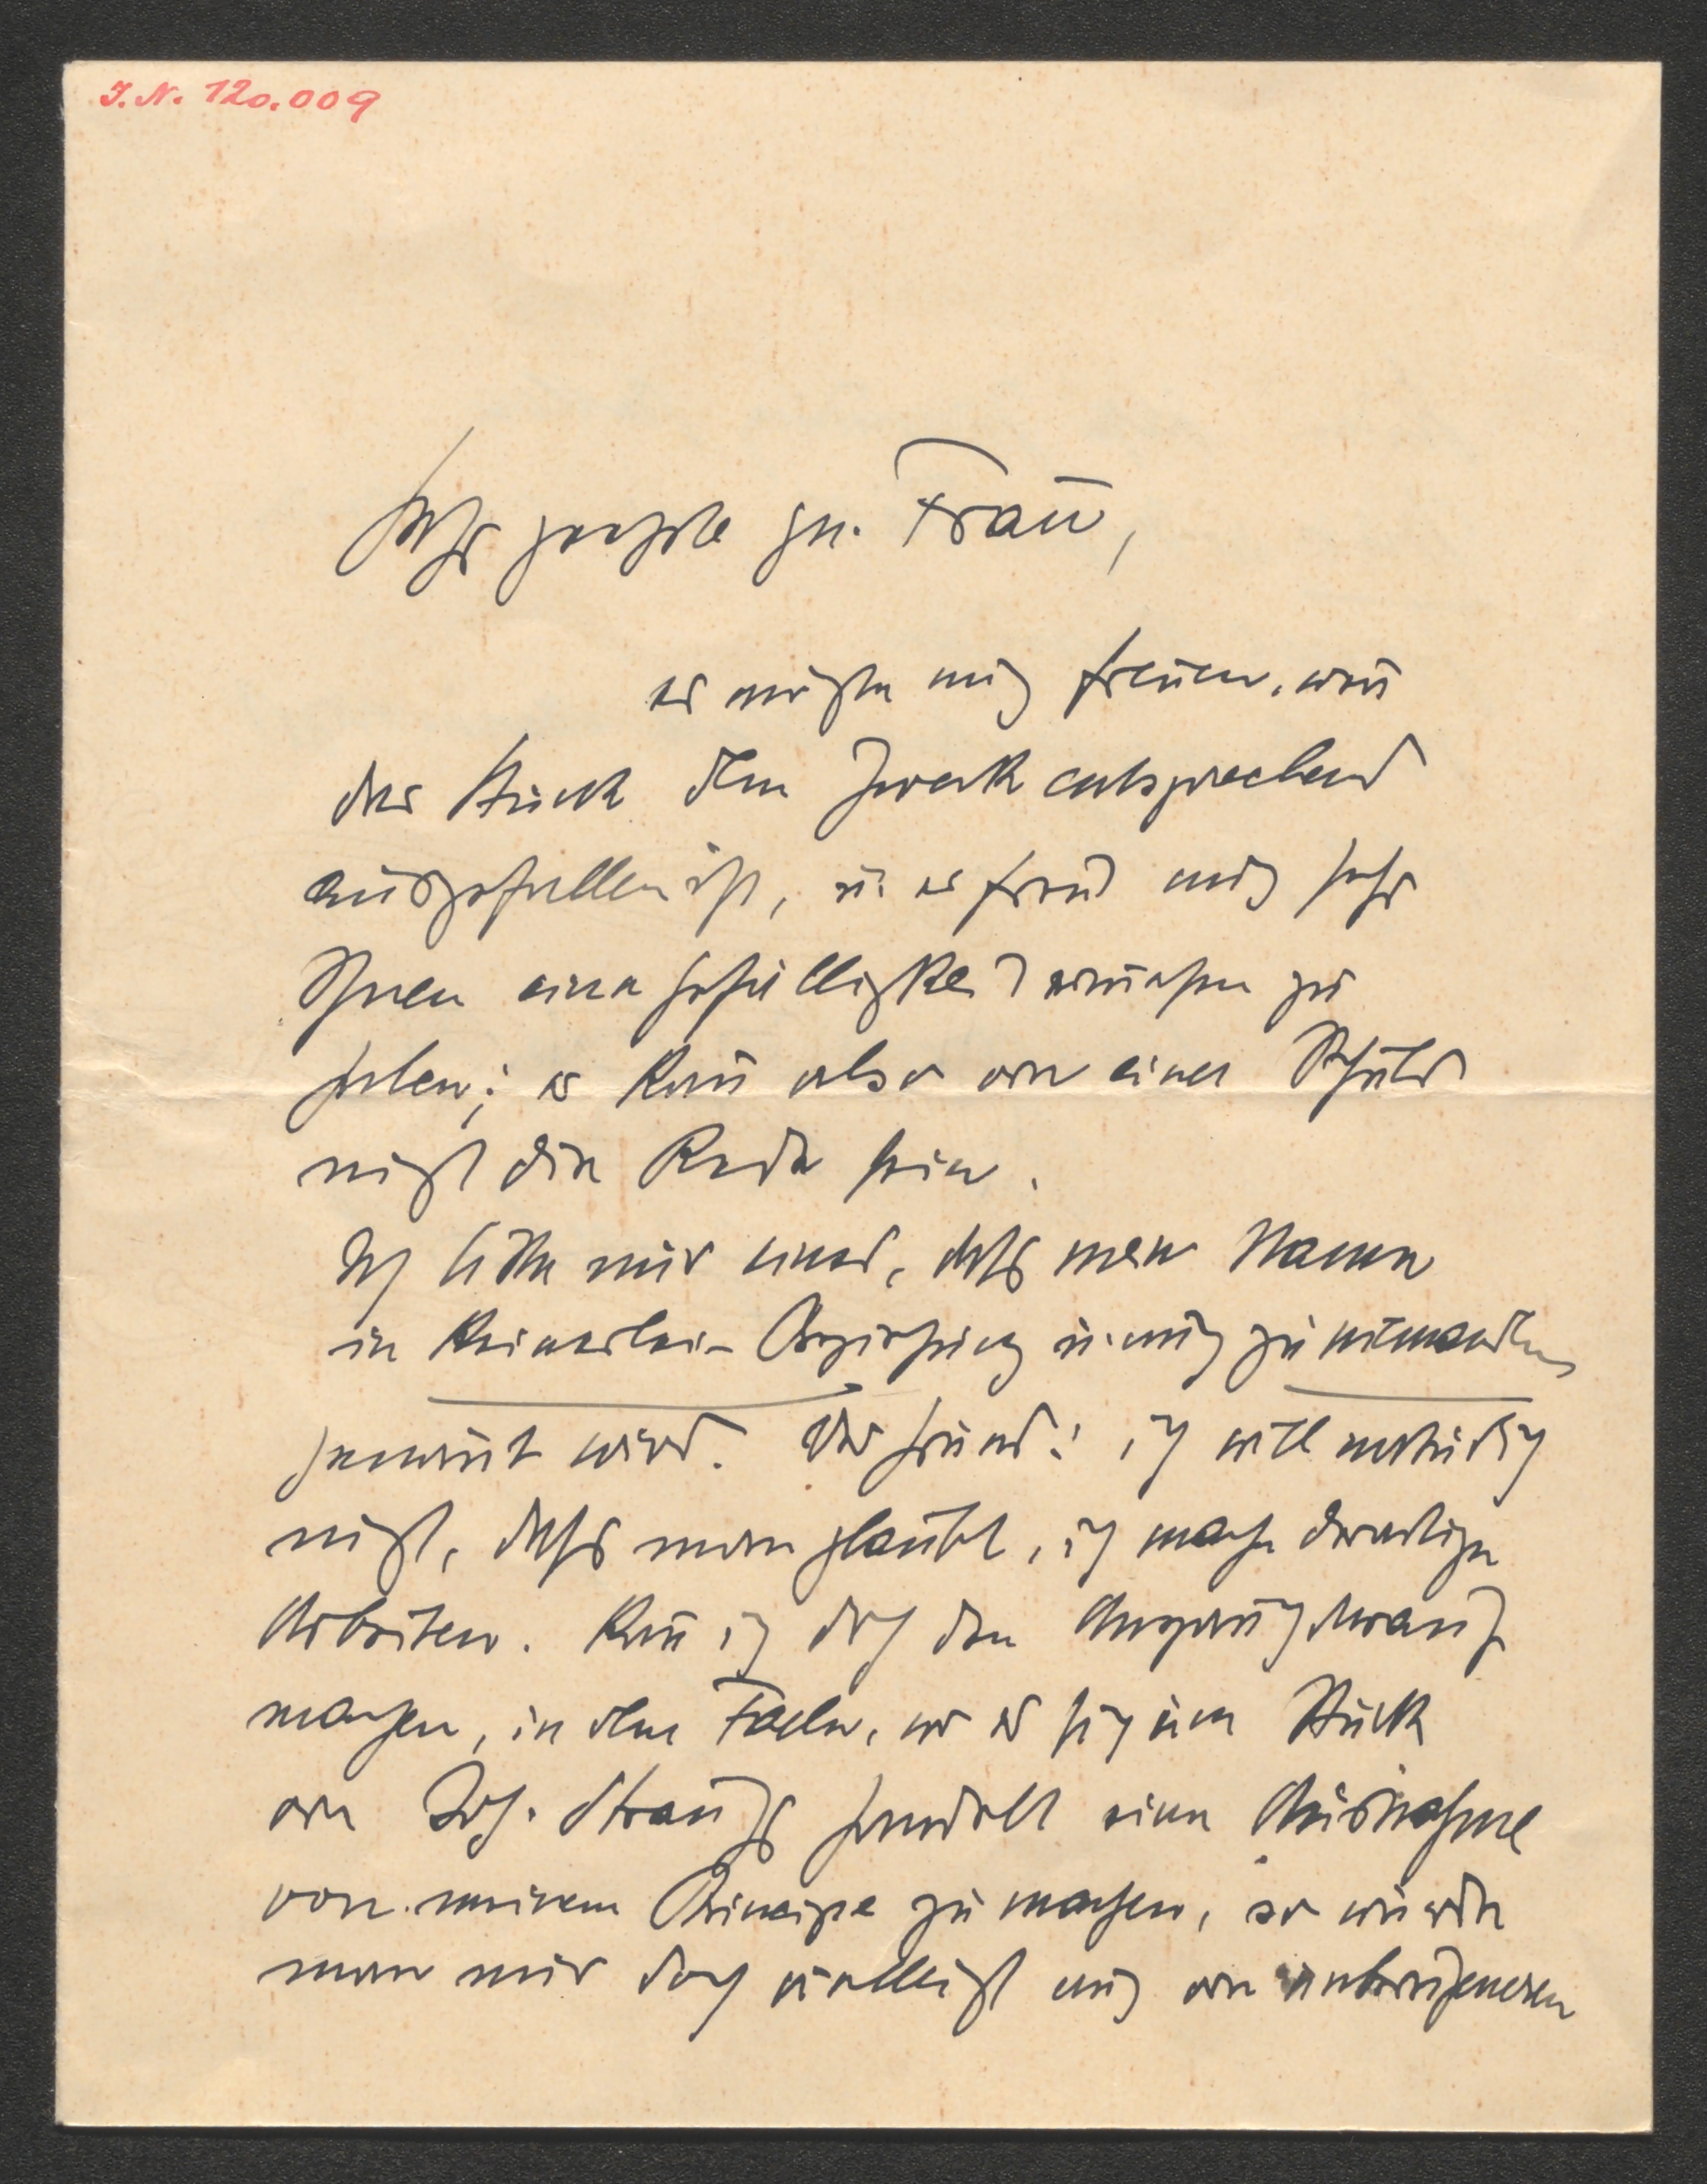 I.N. 120.009
Sehr geehrte gn. Frau,
es möchte mich freuen, wenn̄
das Stück dem Zweck entsprechend
ausgefallen ist, u. es freut mich sehr
Ihnen eine Gefälligkeit erwiesen zu
haben; es kan̄ also von einer Schuld
nicht die Rede sein.
Ich bitte nur eines, dass mein Name
in keinerlei Beziehung u. mich zu niemandem
genan̄t wird. Der Grund: ich will natürlich
nicht, dass man glaubt, ich mache derartige
Arbeiten. Kan̄ ich doch den Anspruch darauf
machen, in dem Falle, wo es sich um Stück
von Joh. Strauss handelt eine Ausnahme
von meinem Principe zu machen, so würde
man mir doch vielleicht auch von